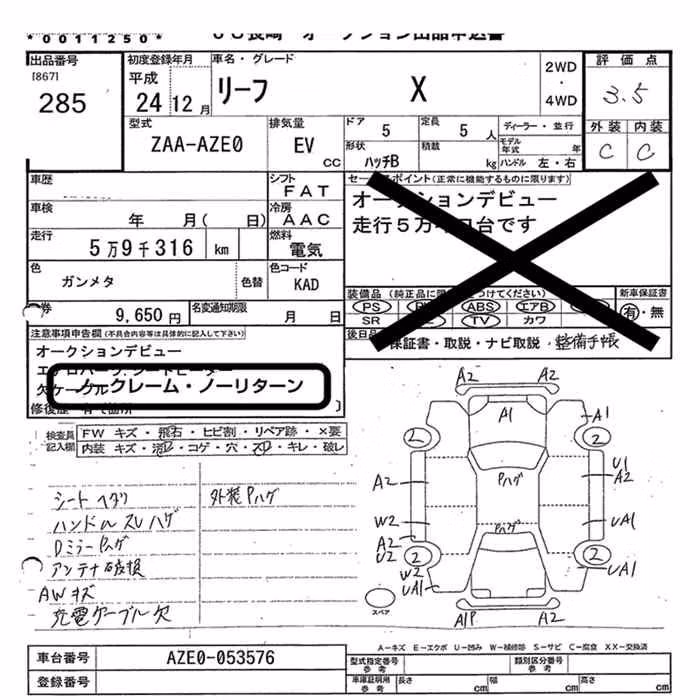 *0011250*
出品番号 [867] 285
初度登録年月 平成 24 12月
車名・グレード リーフ X
2WD・4WD
評価点 3.5
型式 ZAA-AZE0
排気量 EV CC
ドア 5 定員 5人
ディーラー・並行
モデル年式 年
形状 ハッチB 積載 kg ハンドル 左・右
外装 内装
C C
車歴
シフト FAT
車検 年 月( 日)
冷房 AAC
走行 5万9千316 km
燃料 電気
色 ガンメタ 色替
色コード KAD
セールスポイント(正常に機能するものに限ります)
オークションデビュー
走行5万キロ台です
装備品
新車保証書
PS ABS エアB
SR TV カワ
有・無
保証書・取説・ナビ取説, 整備手帳
券 9,650円 名変通知期限 月 日
注意事項申告欄(不具合内容等は具体的に記入して下さい)
オークションデビュー
ノークレーム・ノーリターン
検査員記入欄
FW キズ・飛石・ヒビ割・リペア跡・×要
内装 キズ・コゲ・穴・キレ・破レ
シート ヘタリ 外装Pハゲ
ハンドル スレ ハゲ
DミラーPハゲ
アンテナ破損
AWキズ
充電ケーブル欠
A2 A2
A1 A1
2 2
A2 Pハゲ U1 A2
W2 Pハゲ UA1
A2 U2 2 2
W2 UA1 UA1
スペア
A1P A2
A-キズ E-エクボ U-凹み W-補修跡 S-サビ C-腐食 XX-交換済
車台番号 AZE0-053576
型式指定番号 参考 類別区分番号 参考
登録番号
車庫証明用 参考 長さ cm 幅 cm 高さ cm